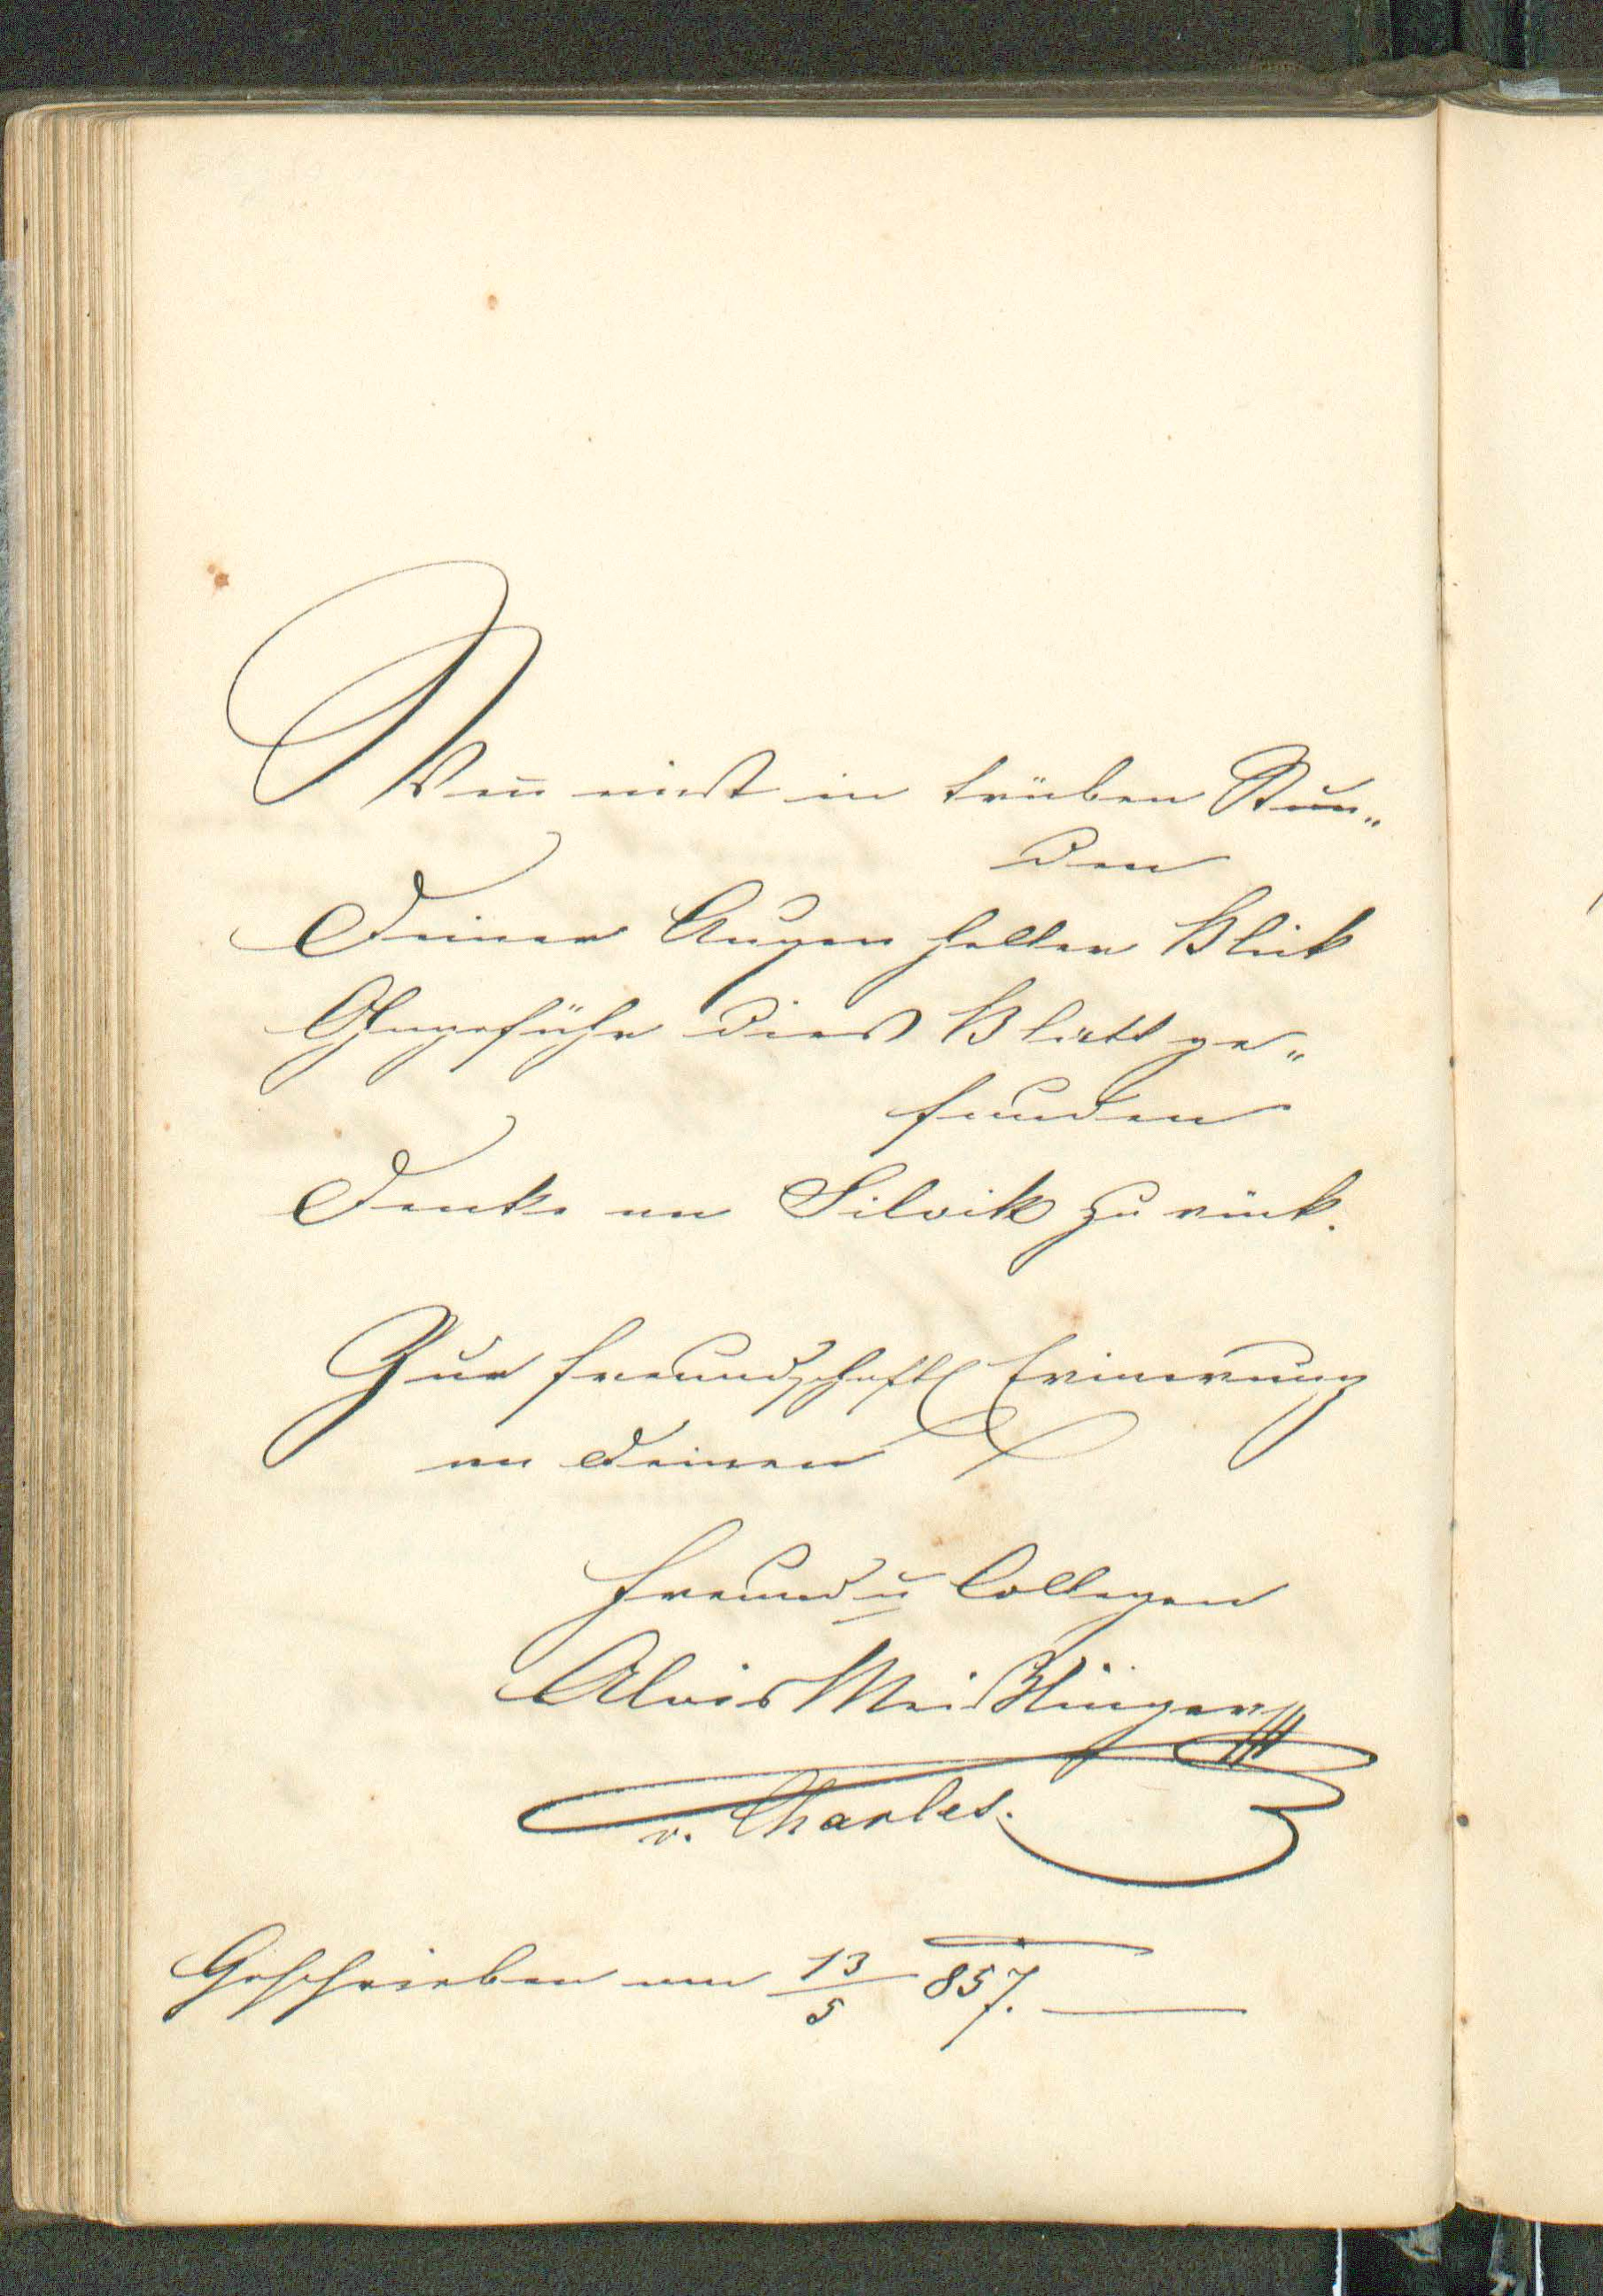 Wen̅ einst in trüben Stun„
den
Deiner Augen heller Blick
Ohngefähr dies Blatt ge„
funden
Denke an Silvik zurück.
Zur freundschaftl Erinerung
an Deinen
Freund u Collegen
Alois Meißlinger
v. Charles.
Geschrieben am 13/5 857.